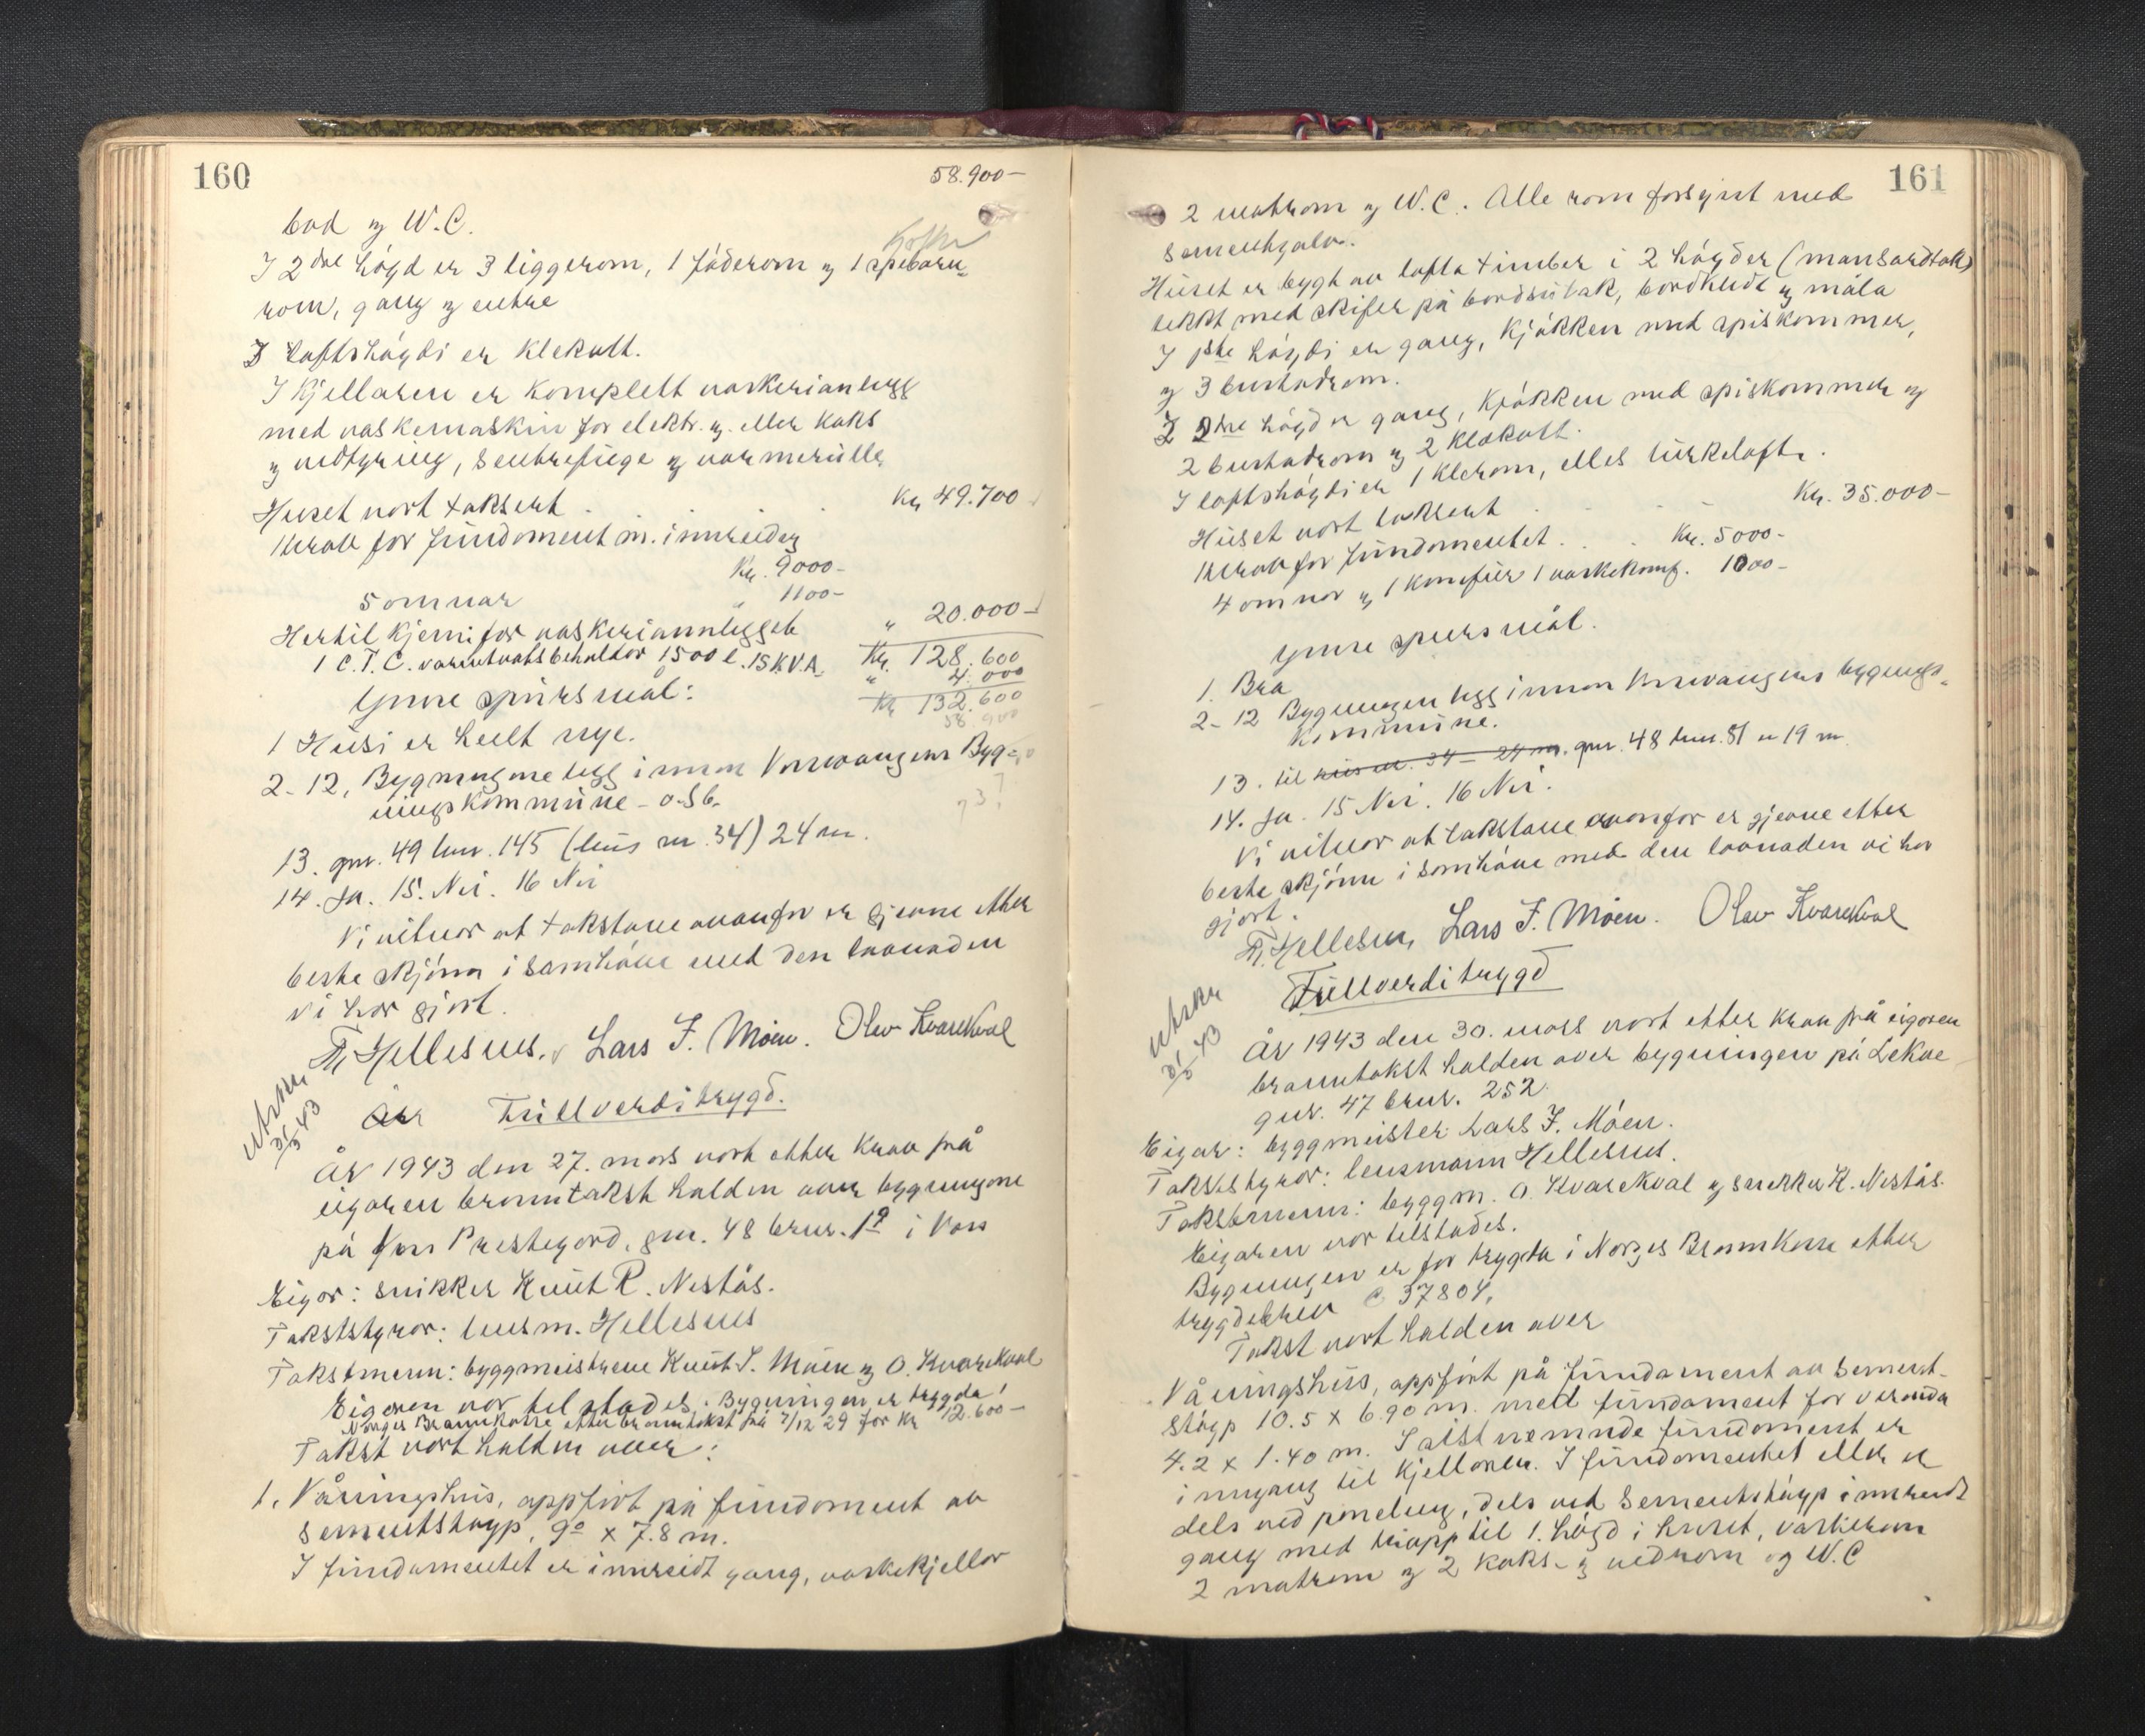 160
58.900-
bad og W.C.
I 2dre høgd er 3 liggerom, 1 föderom og 1 spebarn-
rom, gang og entre
I loftshögdi er klekott.
I kjellaren er komplett vaskerianlegg
med vaskemaskin for elektr. og eller koks
og vedfyring, sentrefuge og varmerulle
Huset vort taksert . . Kr 49.700
Herav for fundament m. innreiding
Kr. 9000-
5 omnar " 1100-
Hertil kjem for vaskerianlegget " 20.000-
1 C.T.C. varmtvatsbehaldar 1500 l. 15 K.V.A. Kr. 128.600
" 4.000
Ymse spursmål: Kr 132.600
58.900
1 Husi er heilt nye.
2-12, Bygningane ligg innan Vossevangens Byg-
ningskommune - o.s.b.
13. gnr. 49 bnr. 145 (hus nr. 34) 24 m.
14. Ja. 15. Nei. 16 Nei
Vi vitnar at takstane ovanfor er gjevne etter
beste skjönn i samhöve med den lovnaden
vi har gjort.
Hellesnes, Lars J. Möen. Olav Kvarekval
utskr 31/5 43
Fullverditrygd.
År 1943 den 27. mars vort etter krav frå
eigaren branntakst halden over bygningane
på Voss Prestegard, gnr. 48 brnr. 19 i Voss
Eigar: snikker Knut R. Nestås.
Takststyrar: lensm. Hellesnes
Takstmenn: byggmeistrene Knut S. Möen og O. Kvarekval
Eigaren var tilstades. Bygningen er trygda i
Norges Brannkasse etter branntakst frå 7/12 29 for kr 12.600-
Takst vort halden over:
1. Våningshus, uppfört på fundament av
sementstøyp, 9.0 x 7.8 m.
I fundamentet er innreidt gang, vaskekjellar
161
2 matrom og W.C. Alle rom forsynt med
sementgolv.
Huset er bygt av lafta timber i 2 högder (mansardtak)
tekkt med skifer på bordsutak, bordkledt og måla
I 1ste högdi er gang, kjökken med spiskammer,
og 3 burtadrom.
I 2dre högd er gang, kjökken med spiskammer og
2 burtadrom og 2 klekott.
I loftshögdi er 1 klerom, elles turkeloft.
Huset vort taksert . . . Kr. 35.000-
Herav for fundamentet . . . Kr. 5000-
4 omnar og 1 komfur 1 vaskekomf. 1000-
Ymse spursmål.
1. Bra
2-12 Bygningen ligg innan Vossevangens bygnings-
kommune.
13. til hus nr. 34 - 24 m. gnr. 48 bnr. 81 er 19 m
14. Ja. 15 Nei. 16 Nei.
Vi vitnar at takstane ovanfor er gjevne etter
beste skjönn i samhöve med den lovnaden vi har
gjort.
Hellesnes, Lars J. Möen. Olav Kvarekval
Fullverditrygd
utskr 31/5 43
År 1943 den 30. mars vort etter krav frå eigaren
branntakst halden over bygningen på Lekve
gnr. 47 brnr. 252.
Eigar: byggmeister Lars J. Möen.
Takststyrar: lensmann Hellesnes.
Takstmenn: byggm. O. Kvarekval og snikker K. Nestås.
Eigaren var tilstades.
Bygningen er for trygda i Norges Brannkasse etter
trygdebrev C 37804,
Takst vort halden over
Våningshus, uppfört på fundament av sement-
støyp 10.5 x 6.90 m. med fundament for veranda
4.2 x 1.40 m. I sistnemnde fundament er
inngang til kjellaren. I fundamentet elles er
dels ved paneling, dels ved sementstøyp innreidt
gang med trapp til 1. högd i huset, vaskerom
2 matrom og 2 koks- og vedrom og W.C